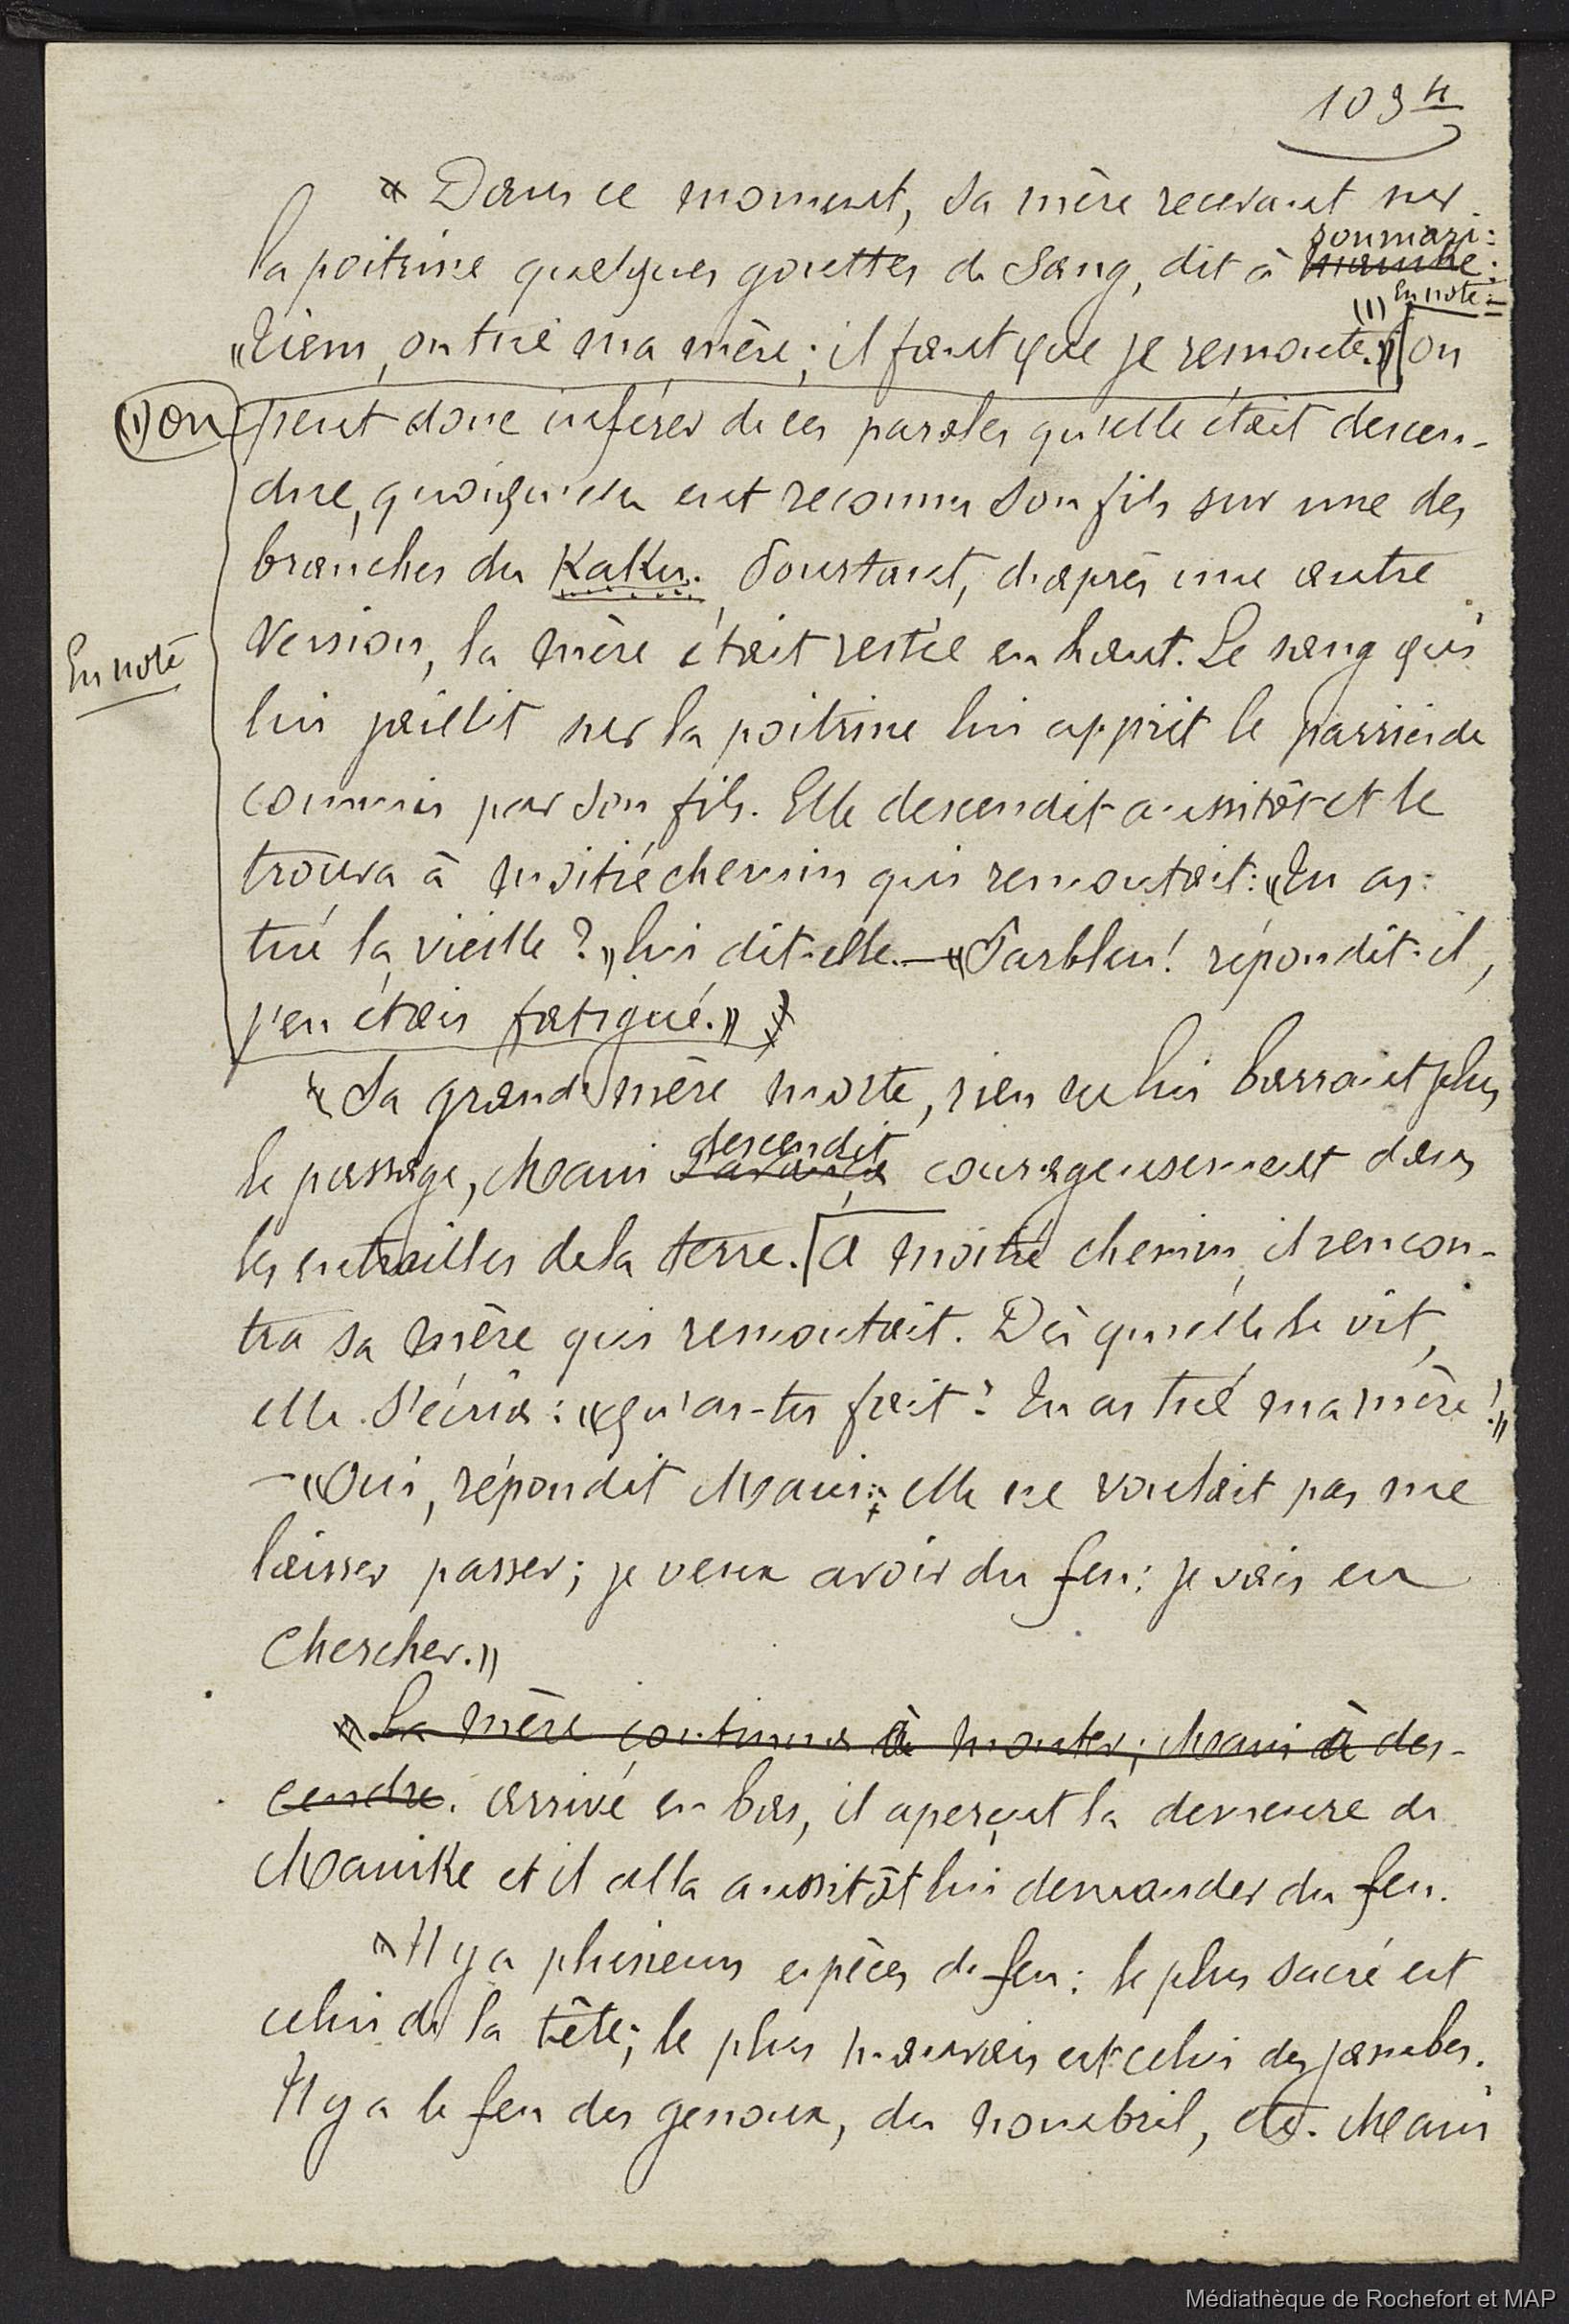 109 4
Dans ce moment, sa mère recevant sur
la poitrine quelques gouttes de sang, dit à ~~Mauike~~ son mari :
(1) En note :
« Tiens, on tué ma mère ; il faut que je remonte. » [on
(1) on peut donc inférer de ces paroles qu'elle était descen-
due, quoiqu'elle eut reconnu son fils sur une des
branches du Kaku. Pourtant, d'après une autre
En note
version, la mère était restée en haut. Le sang qui
lui jaillit sur la poitrine lui apprit le parricide
commis par son fils. Elle descendit aussitôt et le
trouva à moitié chemin qui remontait : « Tu as
tué la vieille ? » lui dit-elle. — « Parbleu ! répondit-il,
j'en étais fatigué. » ]
Sa grand mère morte, rien ne lui barrant plus
le passage, Maui ~~s'avança~~ descendit courageusement dans
les entrailles de la terre. [A moitié chemin, il rencon-
tra sa mère qui remontait. Dès qu'elle le vit,
elle s'écria : « qu'as-tu fait ? Tu as tué ma mère ! »
— « Oui, répondit Maui : elle ne voulait pas me
laisser passer ; je veux avoir du feu : je vais en
chercher. »
~~La mère continua à monter ; Maui à des-~~
~~cendre.~~ arrivé en bas, il aperçut la demeure de
Mauike et il alla aussitôt lui demander du feu.
Il y a plusieurs espèces de feu : le plus sacré est
celui de la tête ; le plus mauvais est celui des jambes.
Il y a le feu des genoux, du nombril, etc. Maui
Médiathèque de Rochefort et MAP